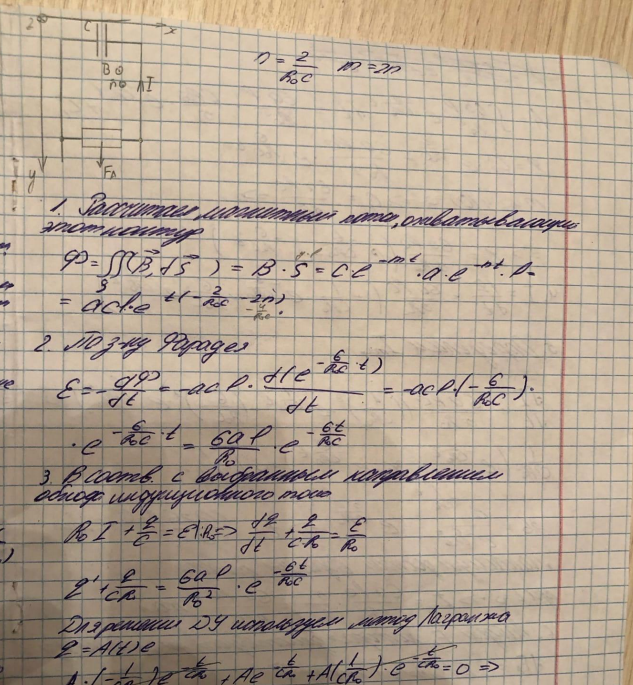 z C x
B n I
y F_A
n = 2/(R₀C) m = 2n
1. Рассчитаем магнитный поток, охватывающий
этот контур
Ф = ∬_S (B⃗, dS⃗) = B·S = C·e^(-mt)·a·e^(-nt)·l =
= acl·e^(t(-2/(R₀C) - 2n)).
2. По з-ну Фарадея
ℰ = -dФ/dt = -acl·d(e^(-6/(R₀C)·t))/dt = -acl·(-6/(R₀C))·
·e^(-6/(R₀C)·t) = 6al/R₀·e^(-6t/(R₀C))
3. В соотв. с выбранным направлением
обхода индукционного тока
R₀I + q/C = ℰ |:R₀ => dq/dt + q/(CR₀) = ℰ/R₀
q' + q/(CR) = 6al/R₀²·e^(-6t/(R₀C))
Для решения ДУ используем метод Лагранжа
q = A(t)e
A·(-1/(CR₀))e^(-t/(CR₀)) + Ae^(-t/(CR₀)) + A(1/(CR₀))·e^(-t/(CR₀)) = 0 =>